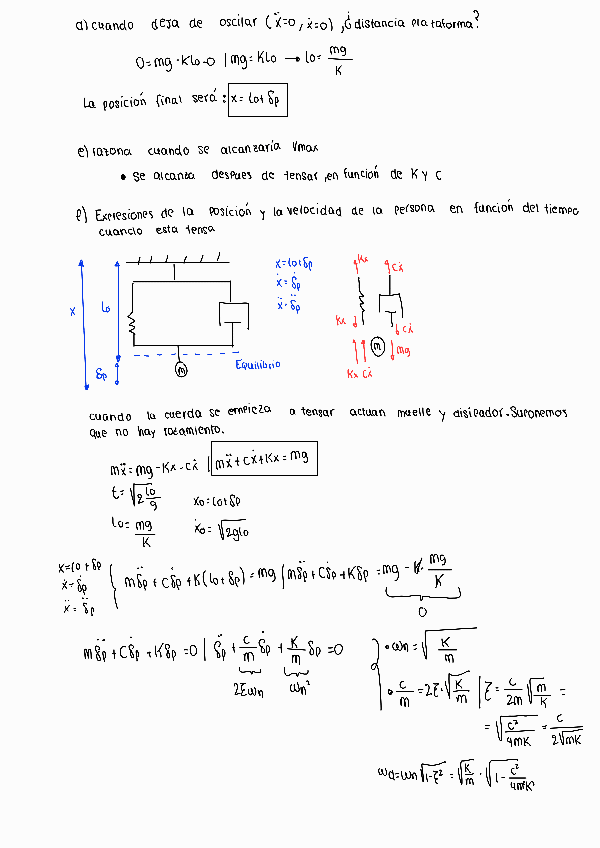 d) cuando deja de oscilar (ẍ=0, ẋ=0), ¿distancia plataforma?
0=mg-Klo-0 | mg=Klo → lo= mg/K
La posición final será: x=lo+δp
e) razona cuando se alcanzaría Vmax
• Se alcanza despues de tensar, en función de K y C
f) Expresiones de la posición y la velocidad de la persona en función del tiempo
cuando esta tensa
x=lo+δp
ẋ=δ̇p
ẍ=δ̈p
x
lo
δp
m
Equilibrio
Kx
cẋ
Kx
cẋ
m
mg
Kx cẋ
cuando la cuerda se empieza a tensar actuan muelle y disipador. Suponemos
que no hay rozamiento.
mẍ=mg-Kx-cẋ | mẍ+cẋ+Kx=mg
t=√(2lo/g)
xo=lo+δp
lo= mg/K
ẋo=√(2glo)
x=lo+δp
ẋ=δ̇p
ẍ=δ̈p
mδ̈p+cδ̇p+K(lo+δp)=mg | mδ̈p+Cδ̇p+Kδp=mg-K·mg/K
0
mδ̈p+Cδ̇p+Kδp=0 | δ̈p+c/m δ̇p+K/m δp=0
2ξωn
ωn²
• ωn=√(K/m)
• c/m=2ξ·√(K/m) | ξ=c/2m √(m/K) =
=√(c²/4mK)=c/2√mK
ωd=ωn√(1-ξ²)=√(K/m)·√(1-c²/4mK)